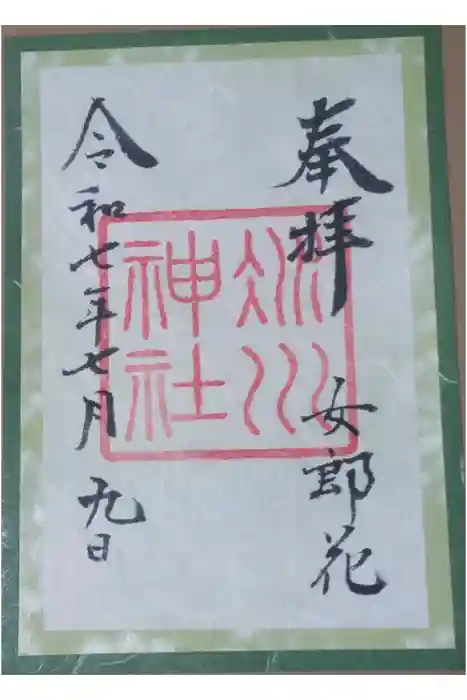 奉拝
女郎花
冰川
神社
令和七年七月九日